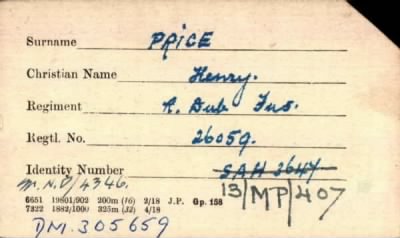 Surname PRICE
Christian Name Henry.
Regiment R. Dub Fus.
Regtl. No. 26059.
Identity Number SAH 3647
M.N.D/4346. 13/MP/407
6651 19801/902 200m (16) 2/18 J.P. Gp. 158
7322 1882/1000 325m (32) 4/18
DM.305659